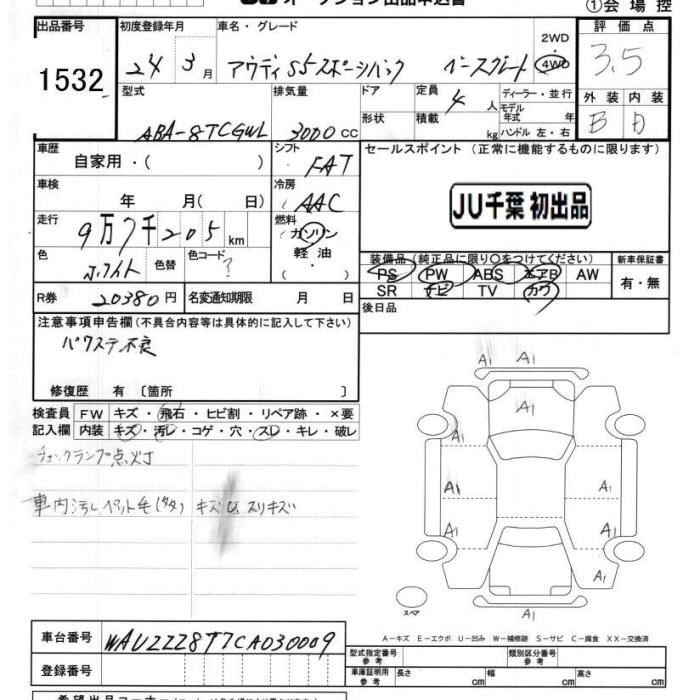 オークション出品申込書
①会場控
出品番号 初度登録年月 車名・グレード 評価点
1532 24 3月 アウディS5スポーツバック ベースグレード 2WD・4WD 3.5
型式 排気量 ドア 定員 ディーラー・並行 外装 内装
ABA-8TCGWL 3000cc 形状 積載 4人 kg モデル年式 年 ハンドル 左・右 B D
車歴 シフト セールスポイント(正常に機能するものに限ります)
自家用・( ) FAT
車検 冷房
年 月(日) AAC JU千葉 初出品
走行 燃料
9万7千205km ガソリン
軽油
色 色替 色コード 装備品(純正品に限り○をつけてください) 新車保証書
ホワイト ? PS PW ABS エアB AW 有・無
SR ナビ TV カワ
R券 20380円 名変通知期限 月 日 後日品
注意事項申告欄(不具合内容等は具体的に記入して下さい)
パワステ不良
修復歴 有〔箇所 〕
検査員 FW キズ・飛石・ヒビ割・リペア跡・×要
記入欄 内装 キズ・汚レ・コゲ・穴・スレ・キレ・破レ
チェックランプ点灯
車内汚レ ペット毛(多々) キズ スリキズ
A1 A1
A1 A1
A1 A1 A1
A1 A1
A1 A1 A1
スペア
A-キズ E-エクボ U-凹み W-補修跡 S-サビ C-腐食 XX-交換済
車台番号 WAUZZZ8T7CA030009 型式指定番号 参考 類別区分番号 参考
登録番号 車庫証明用 参考 長さ cm 幅 cm 高さ cm